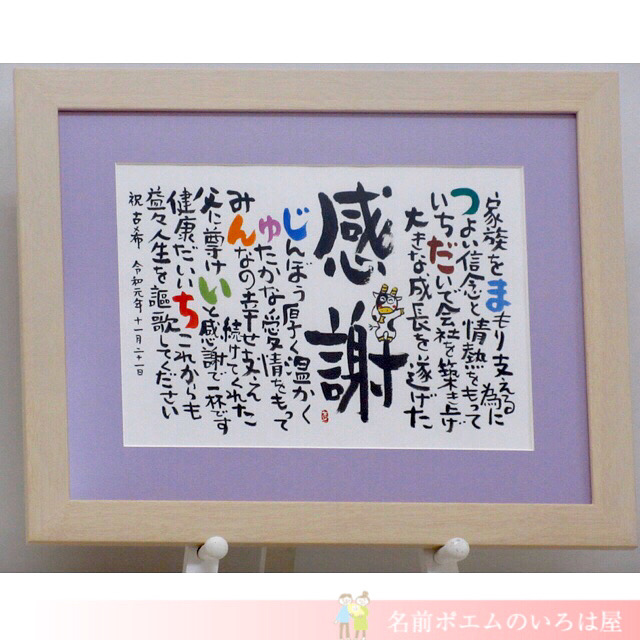 家族をまもり支える為に
つよい信念と情熱をもって
いちだいで会社を築き上げ
大きな成長を遂げた
感謝
じんぼう厚く温かく
ゆたかな愛情をもって
みんなの幸せ支え続けてくれた
父に尊けいと感謝で一杯です
健康だいいちこれからも
益々人生を謳歌してください
祝古希 令和元年十一月二十一日
名前ポエムのいろは屋